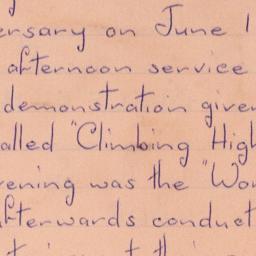 ersary on June 1
afternoon service
demonstration given
alled "Climbing High
ening was the "Wo
fterwards conduct